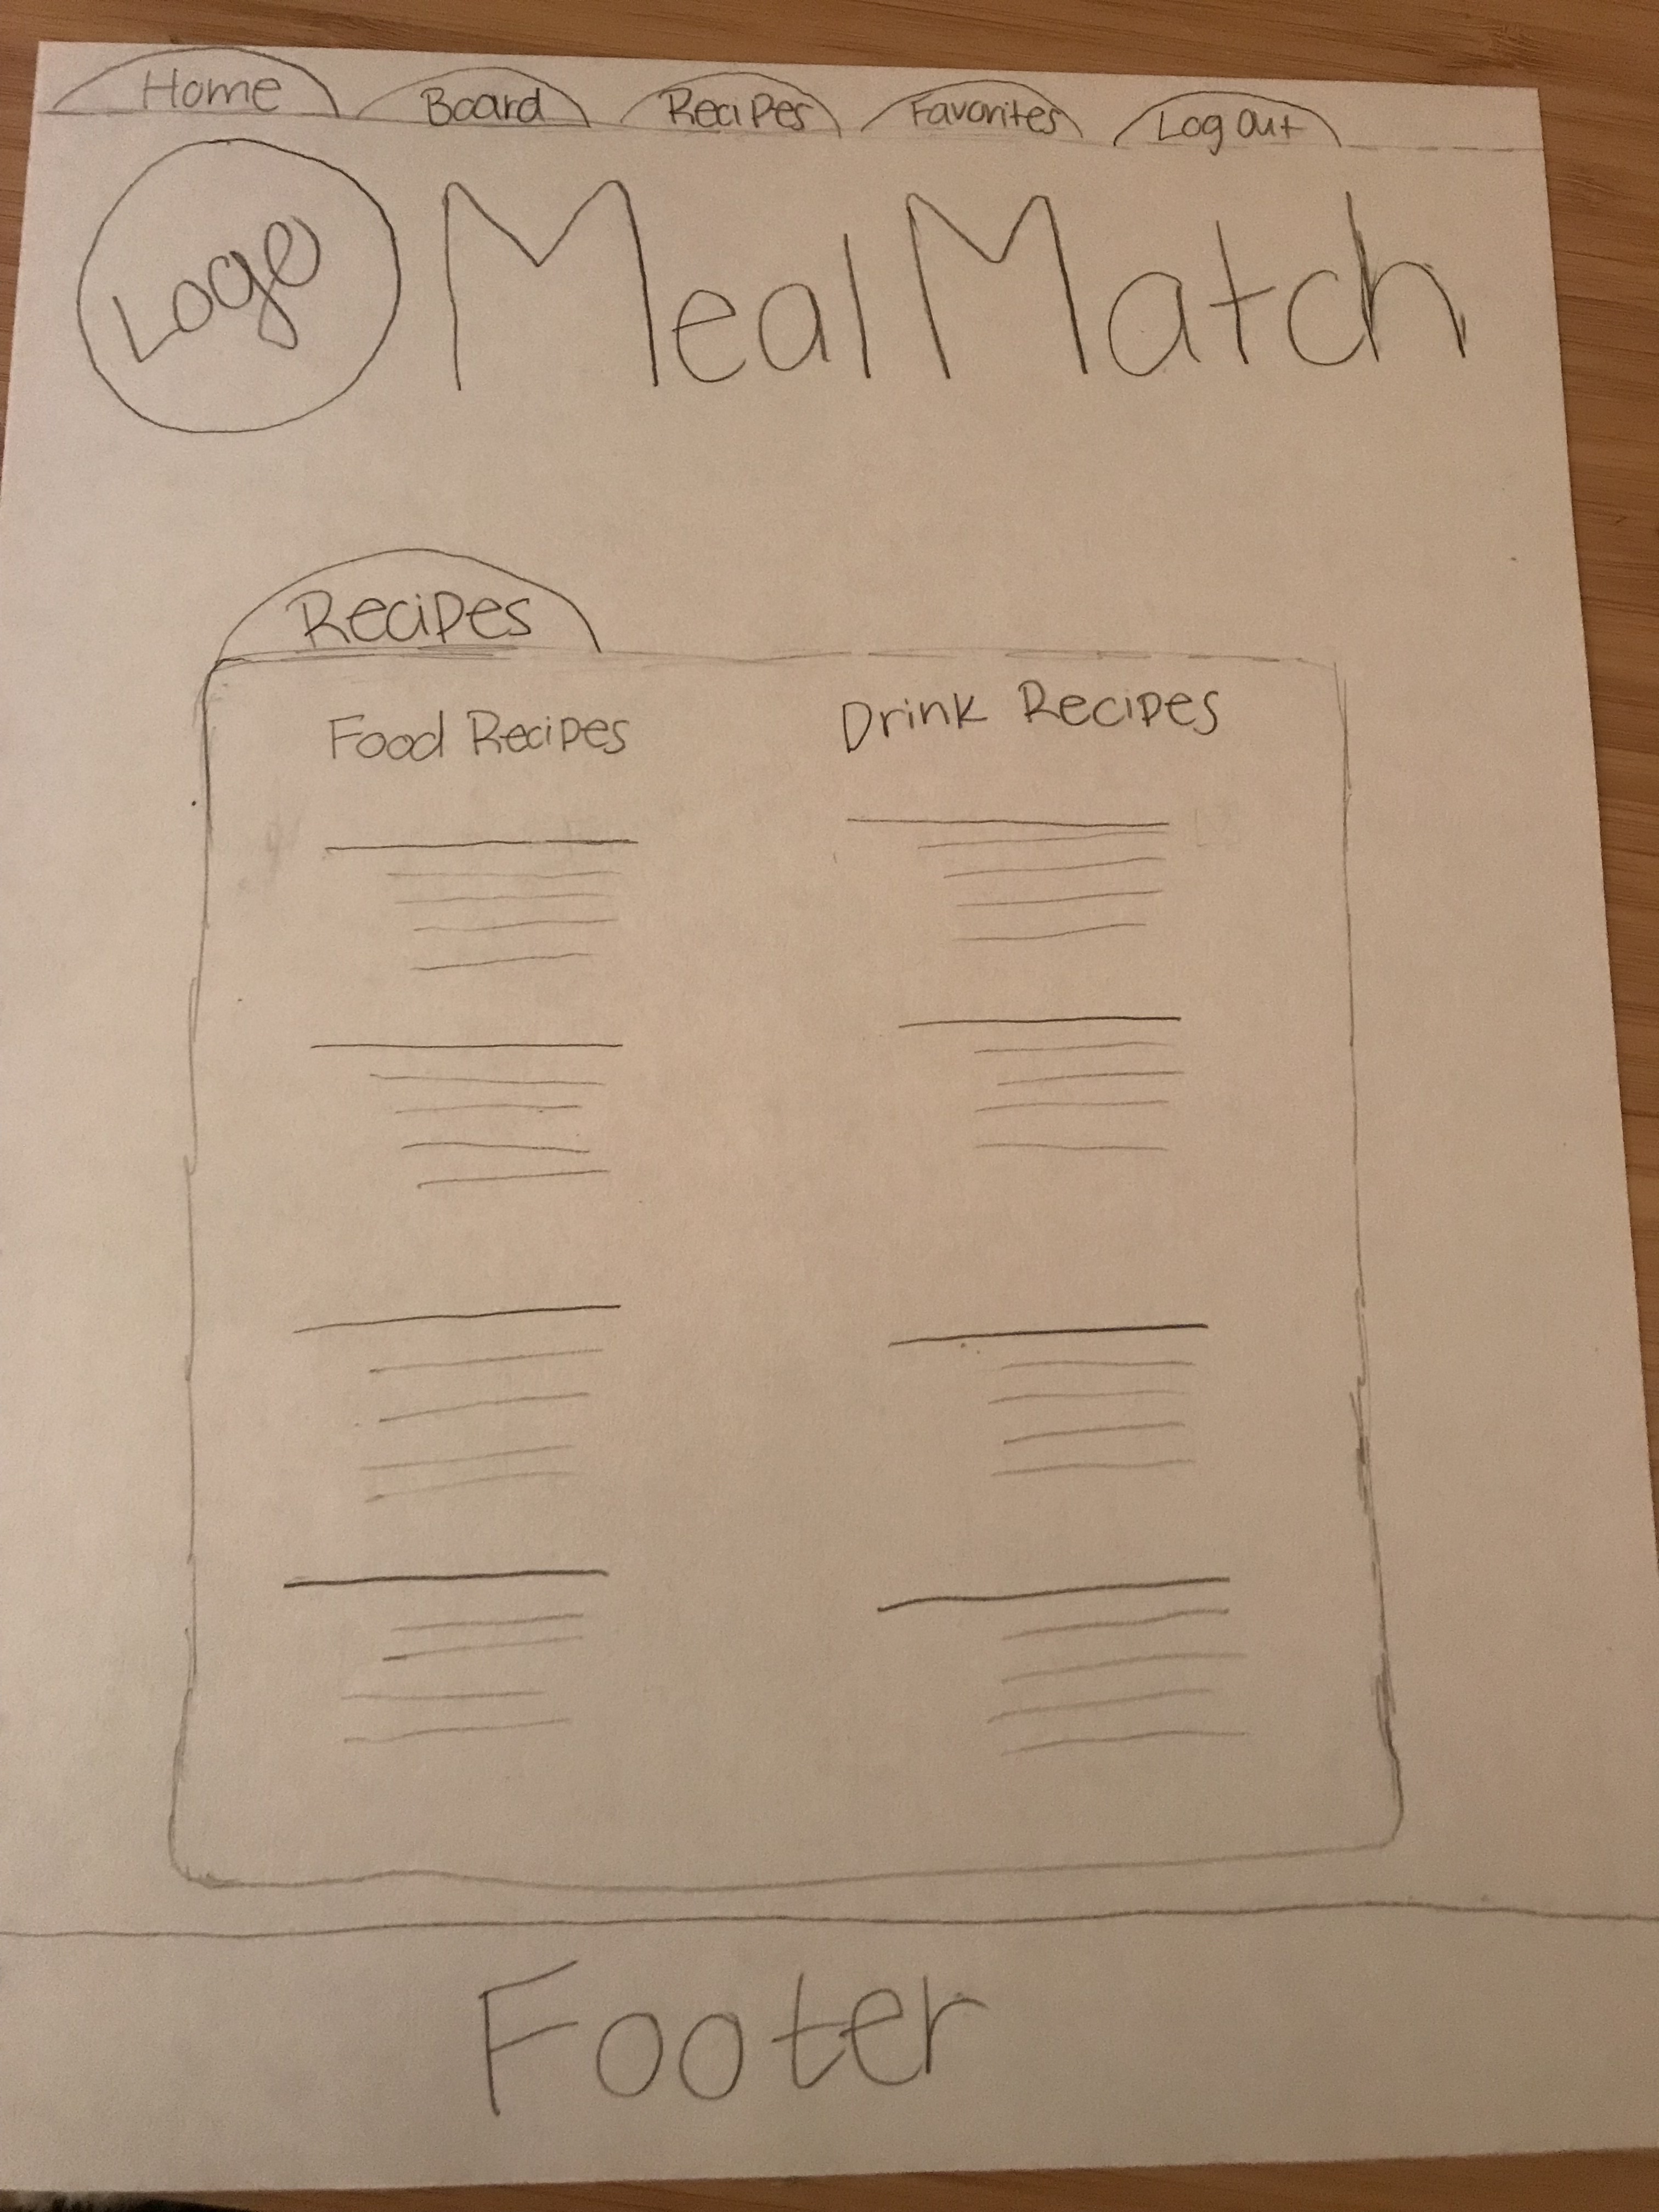 Home Board Recipes Favorites Log Out
Logo MealMatch
Recipes
Food Recipes Drink Recipes
Footer